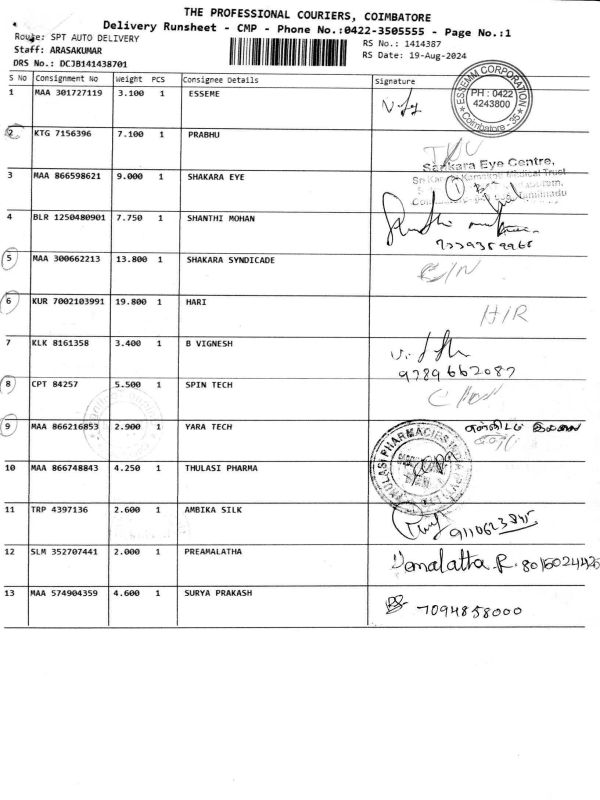 THE PROFESSIONAL COURIERS, COIMBATORE
Delivery Runsheet - CMP - Phone No.:0422-3505555 - Page No.:1
Route: SPT AUTO DELIVERY
Staff: ARASAKUMAR
DRS No.: DCJB141438701
RS No.: 1414387
RS Date: 19-Aug-2024
S No Consignment No Weight PCS Consignee Details Signature
1 MAA 301727119 3.100 1 ESSEME
ESSEMM CORPORATION
PH : 0422
4243800
Coimbatore - 35
2 KTG 7156396 7.100 1 PRABHU
3 MAA 866598621 9.000 1 SHAKARA EYE
Sankara Eye Centre,
Medical Trust
Tamilnadu
4 BLR 1250480901 7.750 1 SHANTHI MOHAN
5 MAA 300662213 13.800 1 SHAKARA SYNDICADE
6 KUR 7002103991 19.800 1 HARI
H/R
7 KLK 8161358 3.400 1 B VIGNESH
9789662087
8 CPT 84257 5.500 1 SPIN TECH
9 MAA 866216853 2.900 1 YARA TECH
10 MAA 866748843 4.250 1 THULASI PHARMA
THULASI PHARMACIES
11 TRP 4397136 2.600 1 AMBIKA SILK
12 SLM 352707441 2.000 1 PREAMALATHA
13 MAA 574904359 4.600 1 SURYA PRAKASH
7094858000